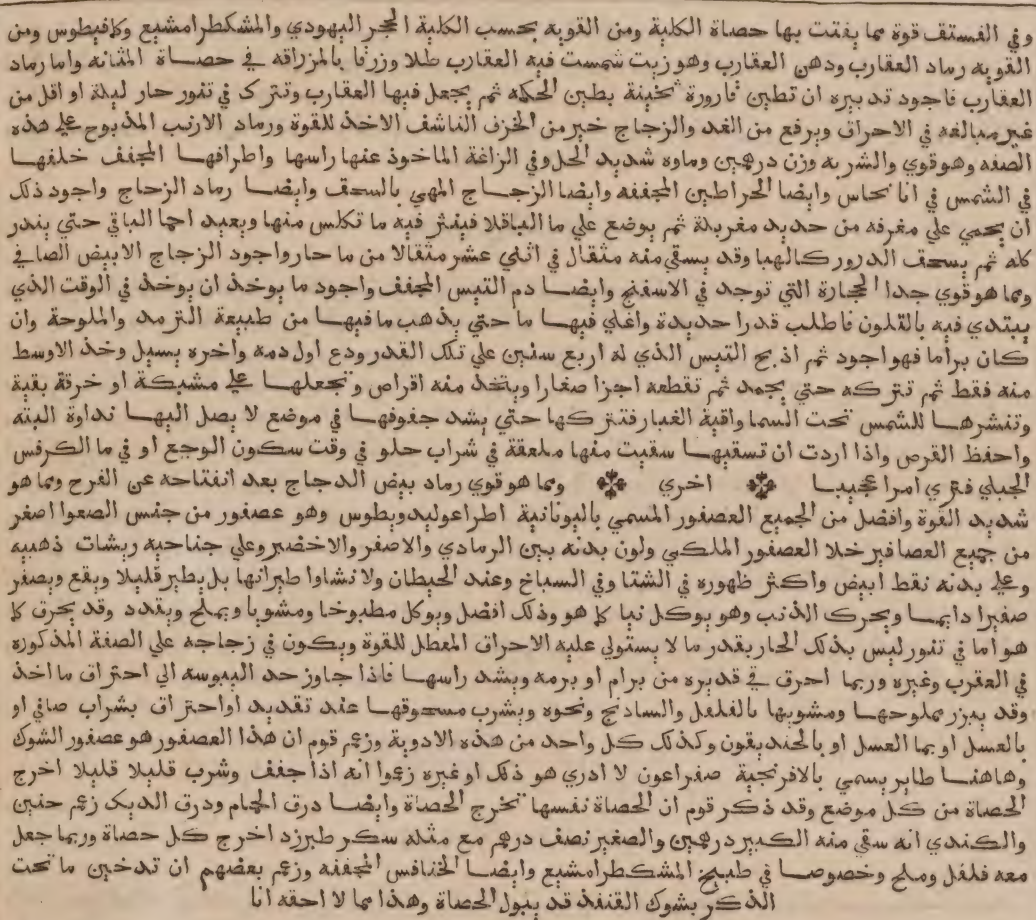 وفي الفستق قوة مما يفتت بها حصاة الكلية ومن القوية بحسب الكلية الحجر اليهودي والمشكطرامشيع وكافيطوس ومن
القوية رماد العقارب ودهن العقارب وهو زيت شمست فيه العقارب طلا وزرقا بالمزراقه في حصاة المثانه واما رماد
العقارب فاجود تدبيره ان تطين قارورة ثخينة بطين الحكمه ثم يجعل فيها العقارب وتترك في تنور حار ليلة او اقل من
غير مبالغه في الاحراق ويرفع من الغد والزجاج خير من الخزف الناشف الاخذ للقوة ورماد الارنب المذبوح علي هذه
الصفه وهو قوي والشربه وزن درهمين وماوه شديد الحل وفي الزاغة الماخوذ عنها راسها واطرافها المجفف خلفها
في الشمس في انا نحاس وايضا الخراطين المجففه وايضا الزجاج المهي بالسحق وايضا رماد الزجاج واجود ذلك
ان يحمي علي مغرفه من حديد مغربلة ثم يوضع علي ما الباقلا فينثر فيه ما تكلس منها ويعيد احما الباقي حتي يندر
كله ثم يسحق الدرور كالهبا وقد يسقي منه مثقال في اثني عشر مثقالا من ما حار واجود الزجاج الابيض الصافي
ومما هو قوي جدا الحجارة التي توجد في الاسفنج وايضا دم التيس المجفف واجود ما يوخذ ان يوخذ في الوقت الذي
يبتدي فيه بالتلون فاطلب قدرا جديدة واغلي فيها ما حتي يذهب ما فيها من طبيعة الترمد والملوحة وان
كان براما فهو اجود ثم اذبح التيس الذي له اربع سنين علي تلك القدر ودع اول دمه واخره يسيل وخذ الاوسط
منه فقط ثم تتركه حتي يجمد ثم تقطعه اجزا صغارا ويتخذ منه اقراص وتجعلها علي مشبكة او خرقة بقية
وتنشرها للشمس تحت السما واقية الغبار فتتركها حتي يشد جفوفها في موضع لا يصل اليها نداوة البته
واحفظ القرص واذا اردت ان تسقيها سقيت منها ملعقة في شراب حلو في وقت سكون الوجع او في ما الكرفس
الجبلي فتري امرا عجيبا ✤ اخري ✤ ومما هو قوي رماد بيض الدجاج بعد انفتاحه عن الفرح ومما هو
شديد القوة وافضل من الجميع العصفور المسمي باليونانية اطراغوليدوبطوس وهو عصفور من جنس الصعوا اصغر
من جميع العصافير خلا العصفور الملكي ولون بدنه بين الرمادي والاصفر والاخضر وعلي جناحيه ريشات ذهبيه
وعلي بدنه نقط ابيض واكثر ظهوره في الشتا وفي السباخ وعند الحيطان ولا نشاوا طيرانها بل يطير قليلا ويقع ويصفر
صفيرا دايما ويحرك الذنب وهو يوكل نيا كما هو وذلك افضل ويوكل مطبوخا ومشويا ويملح ويقدد وقد يحرق كما
هو اما في تنور ليس بذلك الحار بقدر ما لا يستولي عليه الاحراق المعطل للقوة ويكون في زجاجه علي الصفة المذكوره
في العقرب وغيره وربما احرق في قديره من برام او برمه ويشد راسها فاذا جاوز حد اليبوسه الي احتراق ما اخذ
وقد يبزر مملوحها ومشويها بالفلفل والسادنج ونحوه ويشرب مسحوقها عند تقديد اواحتراق بشراب صافي او
بالعسل او بما العسل او بالخنديقون وكذلك كل واحد من هذه الادوية وزعم قوم ان هذا العصفور هو عصفور الشوك
وهاهنا طاير يسمي بالافرنجية صفراعون لا ادري هو ذلك او غيره زعموا انه اذا جفف وشرب قليلا قليلا اخرج
الحصاة من كل موضع وقد ذكر قوم ان الحصاة نفسها تخرج الحصاة وايضا درق الحمام ودرق الديك زعم حنين
والكندي انه سقي منه الكبير درهمين والصغير نصف درهم مع مثله سكر طبرزد اخرج كل حصاة وربما جعل
معه فلفل وملح وخصوصا في طبيخ المشكطرامشيع وايضا الخنافس المجففه وزعم بعضهم ان تدخين ما تحت
الذكر بشوك القنفذ قد يبول الحصاة وهذا مما لا احقه انا